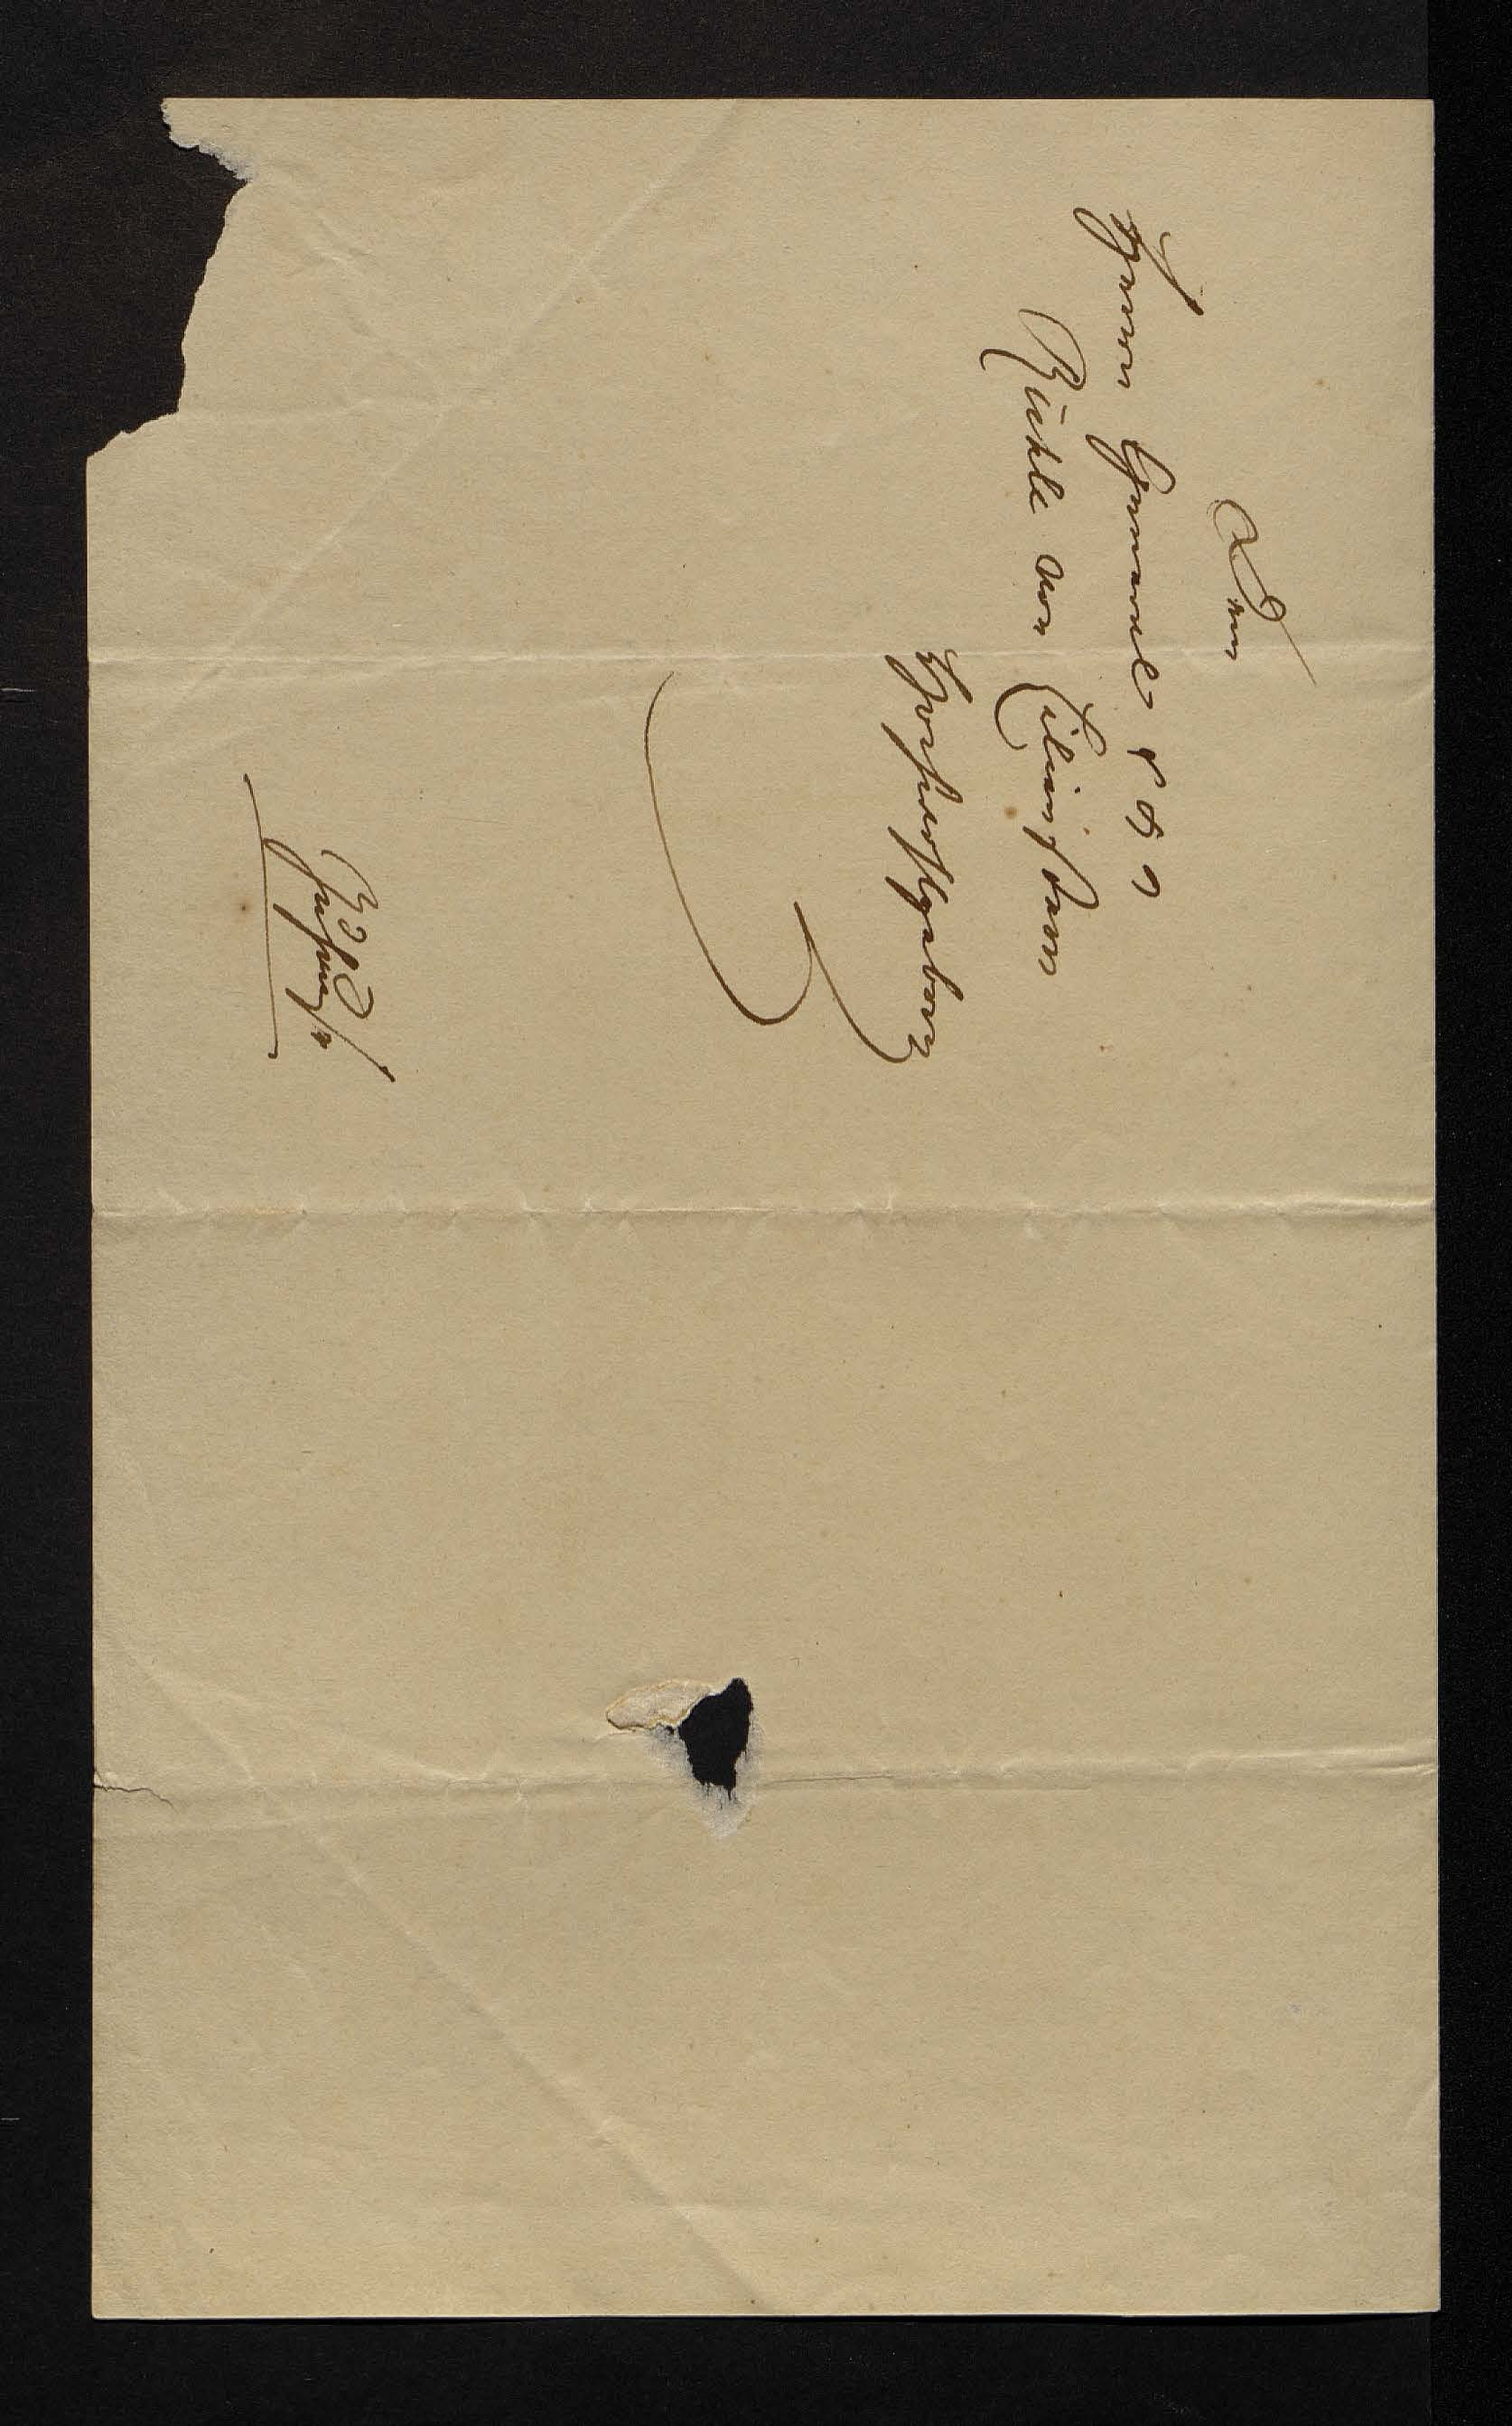 Dem
Herrn General
Rühle von Lilienstern
Hochwohlgeboren